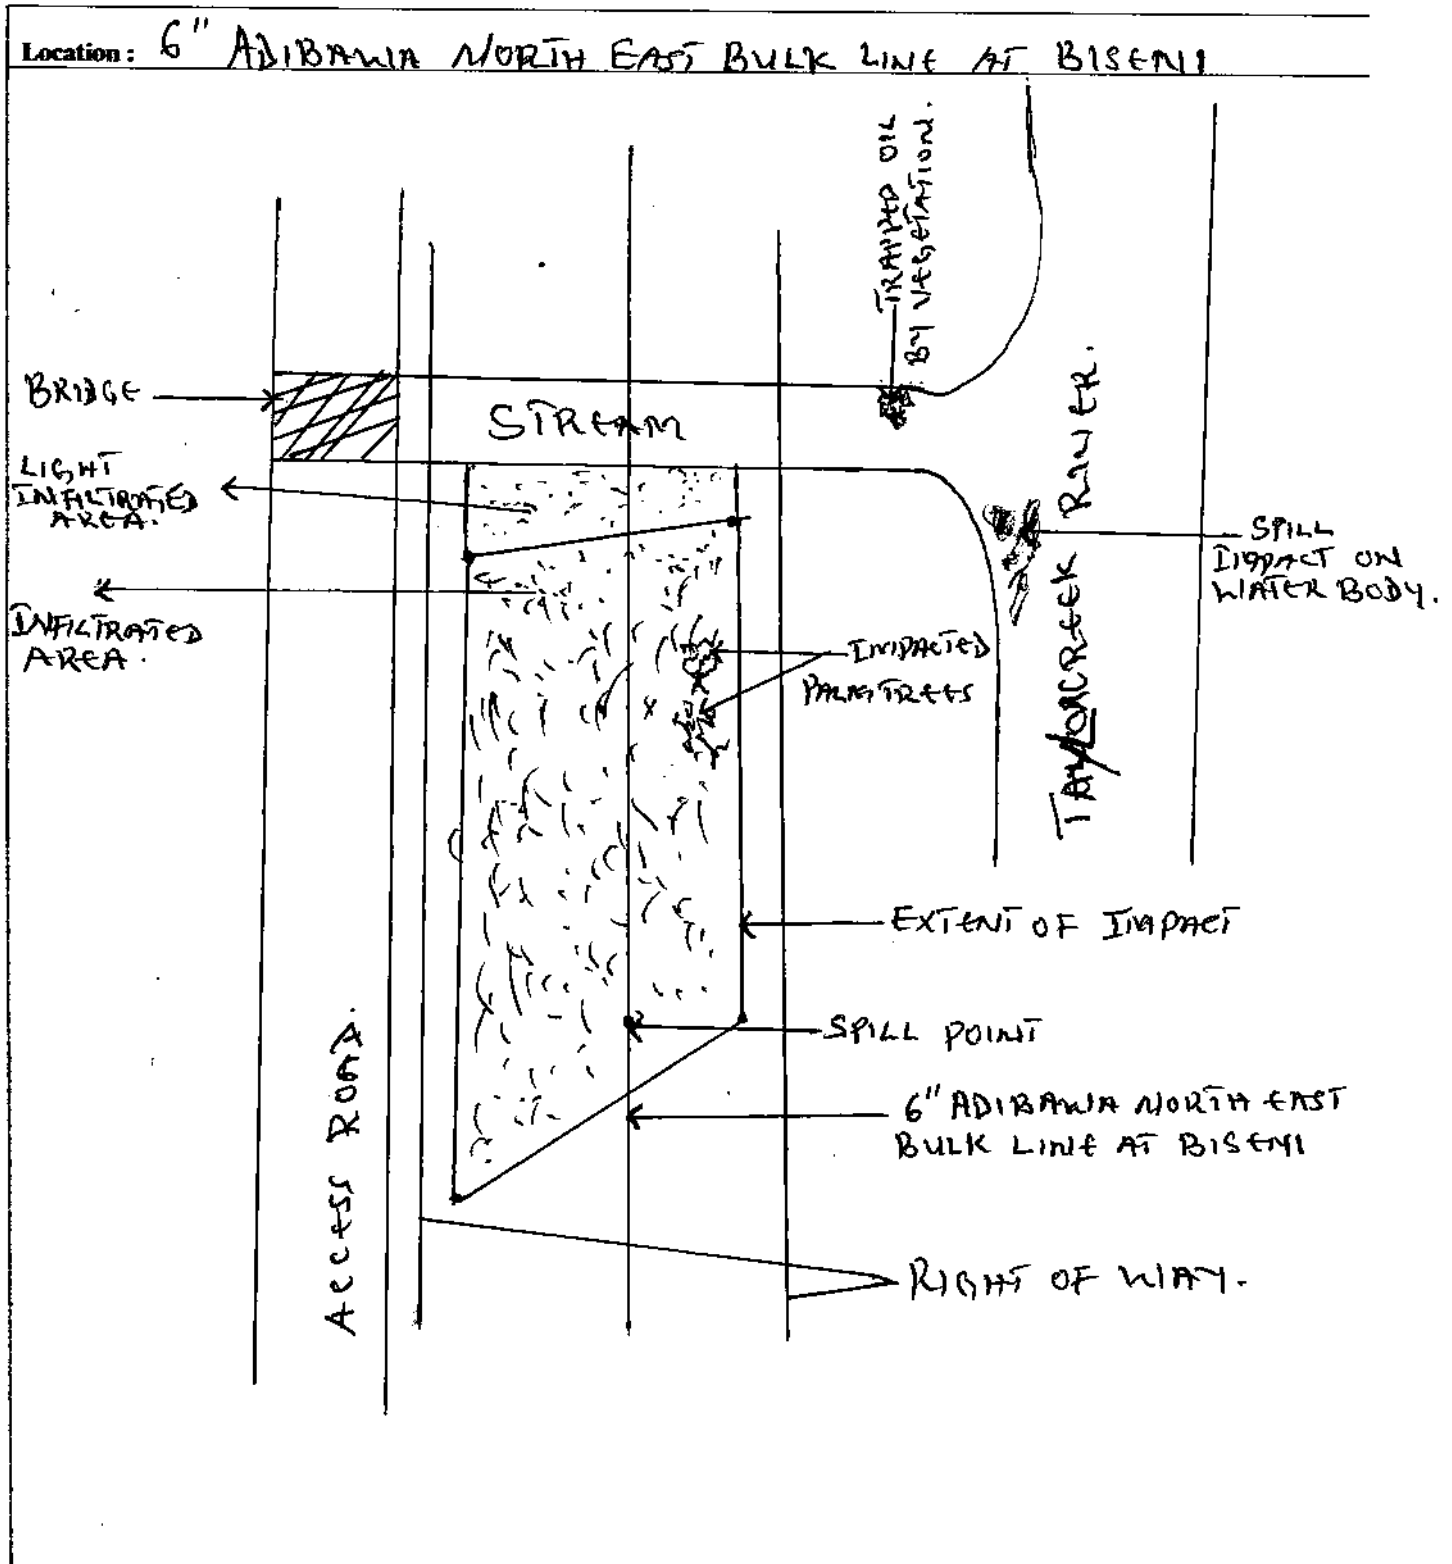 Location: 6" ADIBAWA NORTH EAST BULK LINE AT BISENI
TRAPPED OIL
BY VEGETATION.
BRIDGE
STREAM
LIGHT
INFILTRATED
AREA.
INFILTRATED
AREA.
TAYLORCREEK RIVER.
SPILL
IMPACT ON
WATER BODY.
IMPACTED
PALMTREES
EXTENT OF IMPACT
SPILL POINT
6" ADIBAWA NORTH EAST
BULK LINE AT BISENI
ACCESS ROAD.
RIGHT OF WAY.